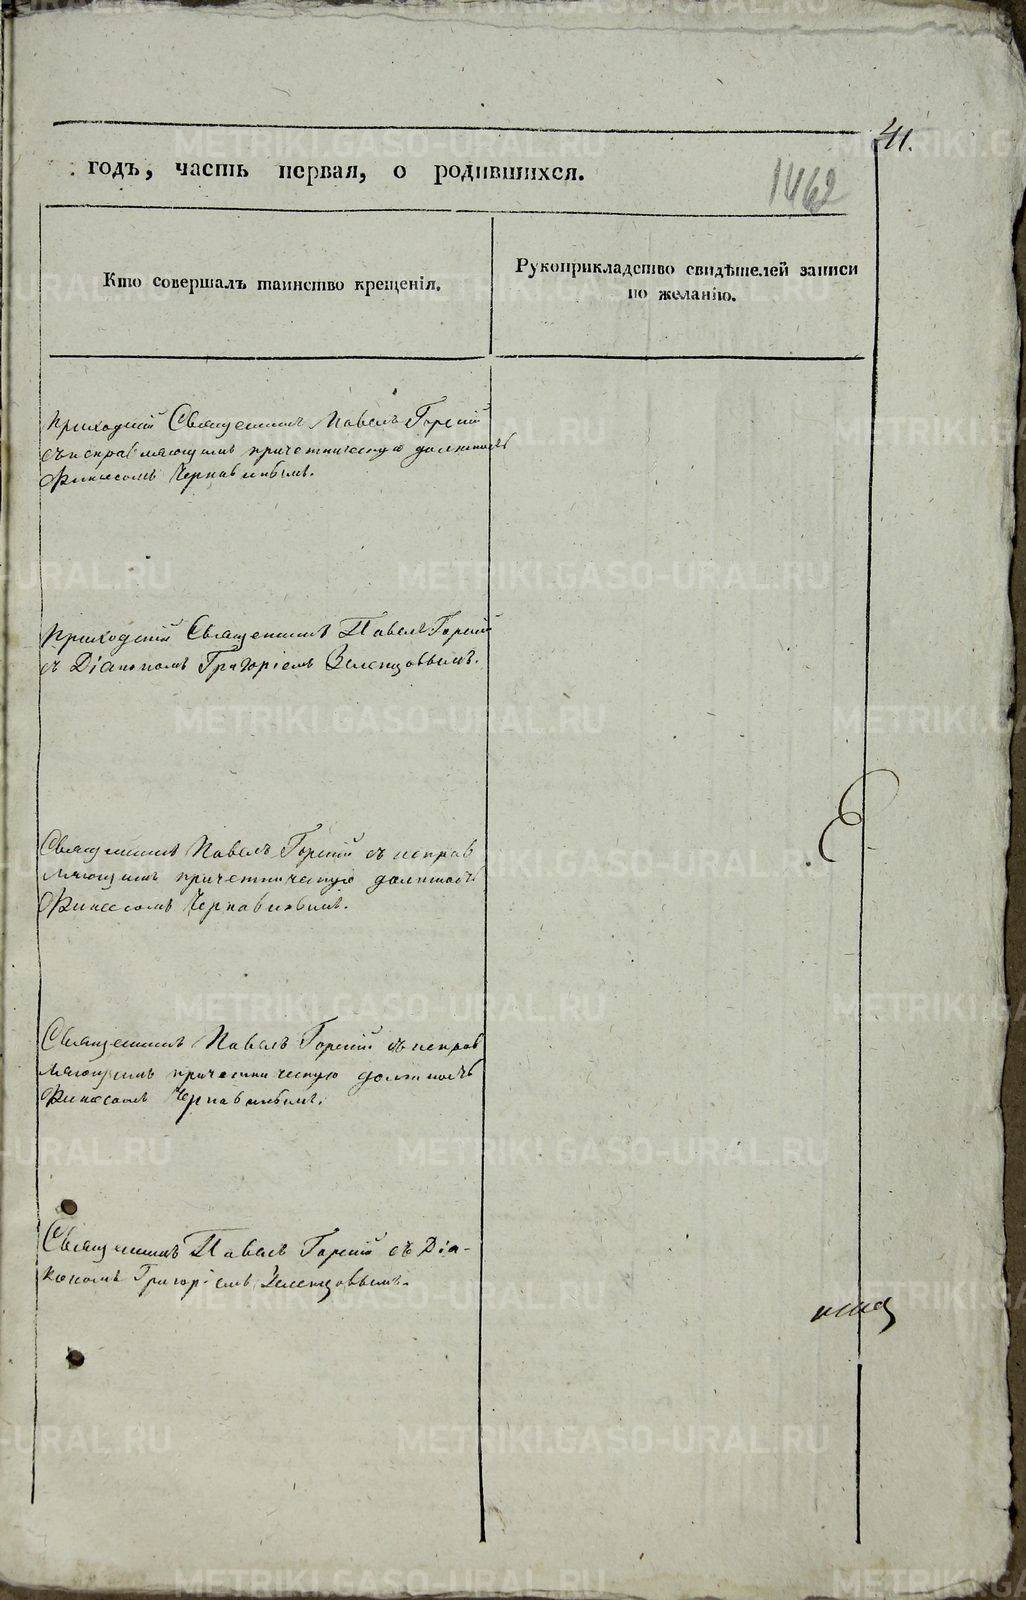 41.
годъ, часть первая, о родившихся.
1462
Кто совершалъ таинство крещенія.
Рукоприкладство свидѣтелей записи
по желанію.
Приходскій Священникъ Павелъ Горскій
съ исправляющимъ причетническую должность
Финеесомъ Чернавинымъ.
Приходскій Священникъ Павелъ Горскій
съ Діакономъ Григоріемъ Зеленцовымъ.
Священникъ Павелъ Горскій съ исправ
ляющимъ причетническую должность
Финеесомъ Чернавинымъ.
Священникъ Павелъ Горскій съ исправ
ляющимъ причетническую должность
Финеесомъ Чернавинымъ.
Священникъ Павелъ Горскій съ Діа-
кономъ Григоріемъ Зеленцовымъ.
METRIKI.GASO-URAL.RU